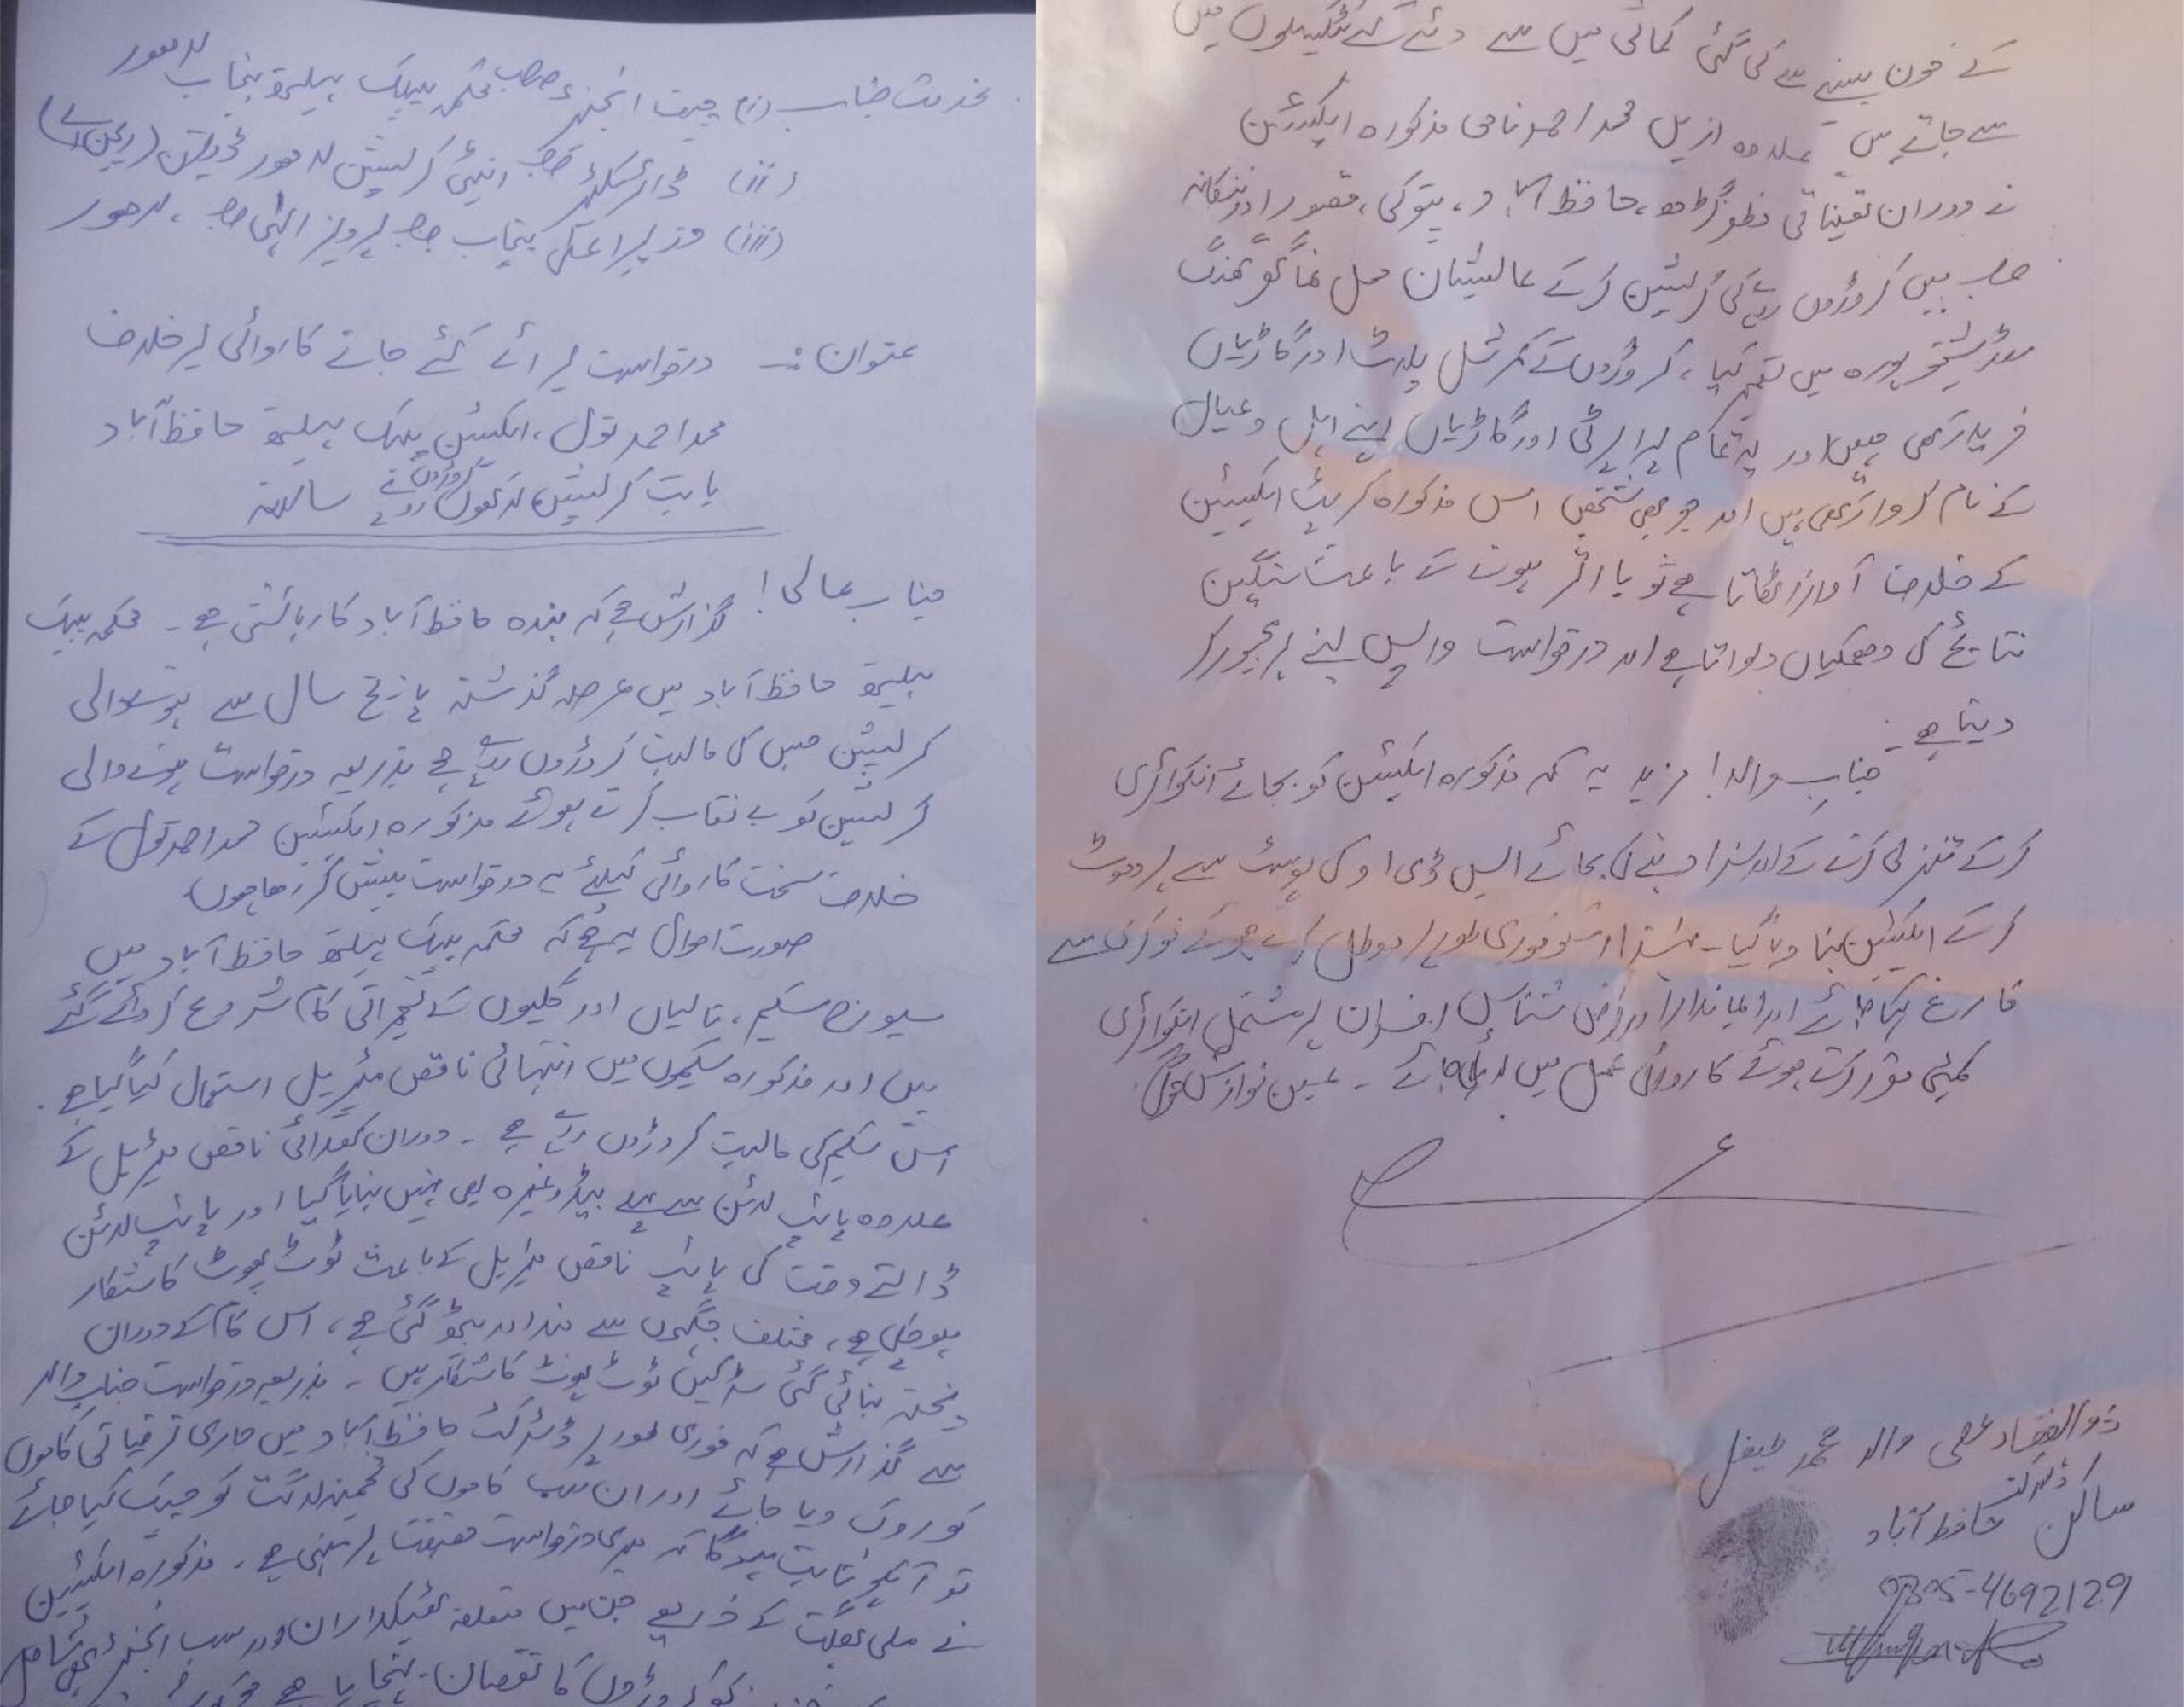 بخدمت جناب (i) چیف انجینئر صاحب محکمہ پبلک ہیلتھ پنجاب لاہور
(ii) ڈائریکٹر صاحب اینٹی کرپشن لاہور ڈویژن (ریجن اے)
(iii) وزیر اعلیٰ پنجاب جناب پرویز الٰہی صاحب، لاہور
عنوان :۔ درخواست برائے کئے جانے کاروائی برخلاف
محمد احمد ، ایکسین پبلک ہیلتھ حافظ آباد
بابت کرپشن لاکھوں کروڑوں روپے سالانہ
جناب عالی! گذارش ہے کہ بندہ حافظ آباد کا رہائشی ہے ۔ محکمہ پبلک
ہیلتھ حافظ آباد میں عرصہ گذشتہ پانچ سال سے ہونیوالی
کرپشن جس کی مالیت کروڑوں روپے ہے بذریعہ درخواست ہونے والی
کرپشن کو بے نقاب کرتے ہوئے مذکورہ ایکسین محمد احمد کے
خلاف سخت کاروائی کیلئے یہ درخواست پیش کر رہا ہوں
صورت احوال یہ ہے کہ محکمہ پبلک ہیلتھ حافظ آباد میں
سیوریج سکیم، نالیاں اور گلیوں کے تعمیراتی کام شروع کروائے گئے
ہیں اور مذکورہ سکیموں میں انتہائی ناقص میٹریل استعمال کیا گیا ہے ۔
اس سکیم کی مالیت کروڑوں روپے ہے ۔ دوران کھدائی ناقص میٹریل کے
علاوہ پائپ لائن سے پہلے بیڈ وغیرہ بھی نہیں بنایا گیا اور پائپ لائن
ڈالتے وقت کی پائپ ناقص میٹریل کے باعث ٹوٹ پھوٹ کا شکار
ہو چکی ہے، مختلف جگہوں سے بند اور بیٹھ گئی ہے، اس کام کے دوران
پختہ بنائی گئی سڑکیں ٹوٹ پھوٹ کا شکار ہیں ۔ بذریعہ درخواست جناب والا
سے گذارش ہے کہ فوری طور پر ڈسٹرکٹ حافظ آباد میں جاری ترقیاتی کاموں
کو روک دیا جائے اور ان سب کاموں کی تخمینہ لاگت کو چیک کیا جائے
تو آپکو ثابت ہوگا کہ میری درخواست حقیقت پر مبنی ہے ۔ مذکورہ ایکسین
نے ملی بھگت کے ذریعے جن میں متعلقہ ٹھیکداران اور سب انجینئر بھی شامل
کو کروڑوں کا نقصان پہنچایا ہے
کے خون پسینے سے کی گئی کمائی میں سے دئے گئے ٹیکسوں میں
سے جاتے ہیں علاوہ ازیں محمد احمد نامی مذکورہ ایکسین
نے دوران تعیناتی مظفر گڑھ، حافظ آباد، پتوکی، قصور اور ننکانہ
صاحب میں کروڑوں روپے کی کرپشن کر کے عالیشان محل نما کوٹھی
شیخوپورہ میں تعمیر کیا، کروڑوں کے کمرشل پلاٹ اور گاڑیاں
خرید رکھی ہیں اور یہ تمام پراپرٹی اور گاڑیاں اپنے اہل و عیال
کے نام کروا رکھی ہیں اور جو بھی شخص اس مذکورہ کرپٹ ایکسین
کے خلاف آواز اٹھاتا ہے تو با اثر ہونے کے باعث سنگین
نتائج کی دھمکیاں دلواتا ہے اور درخواست واپس لینے پر مجبور کر
دیتا ہے ۔
جناب والا! مزید یہ کہ مذکورہ ایکسین کو بجائے انکوائری
کرکے تنزلی کرنے کے اور سزا دینے کی بجائے ایس ڈی او کی پوسٹ سے پروموٹ
کر کے ایکسین بنا دیا گیا ۔ لہٰذا اسکو فوری طور پر معطل کرتے ہوئے نوکری سے
فارغ کیا جائے اور ایماندار اور فرض شناس افسران پر مشتمل انکوائری
کمیٹی مقرر کرتے ہوئے کاروائی عمل میں لائی جائے ۔ عین نوازش ہوگی
ذوالفقار علی والد محمد طفیل
ساکن ڈسٹرکٹ حافظ آباد
0305-4692129